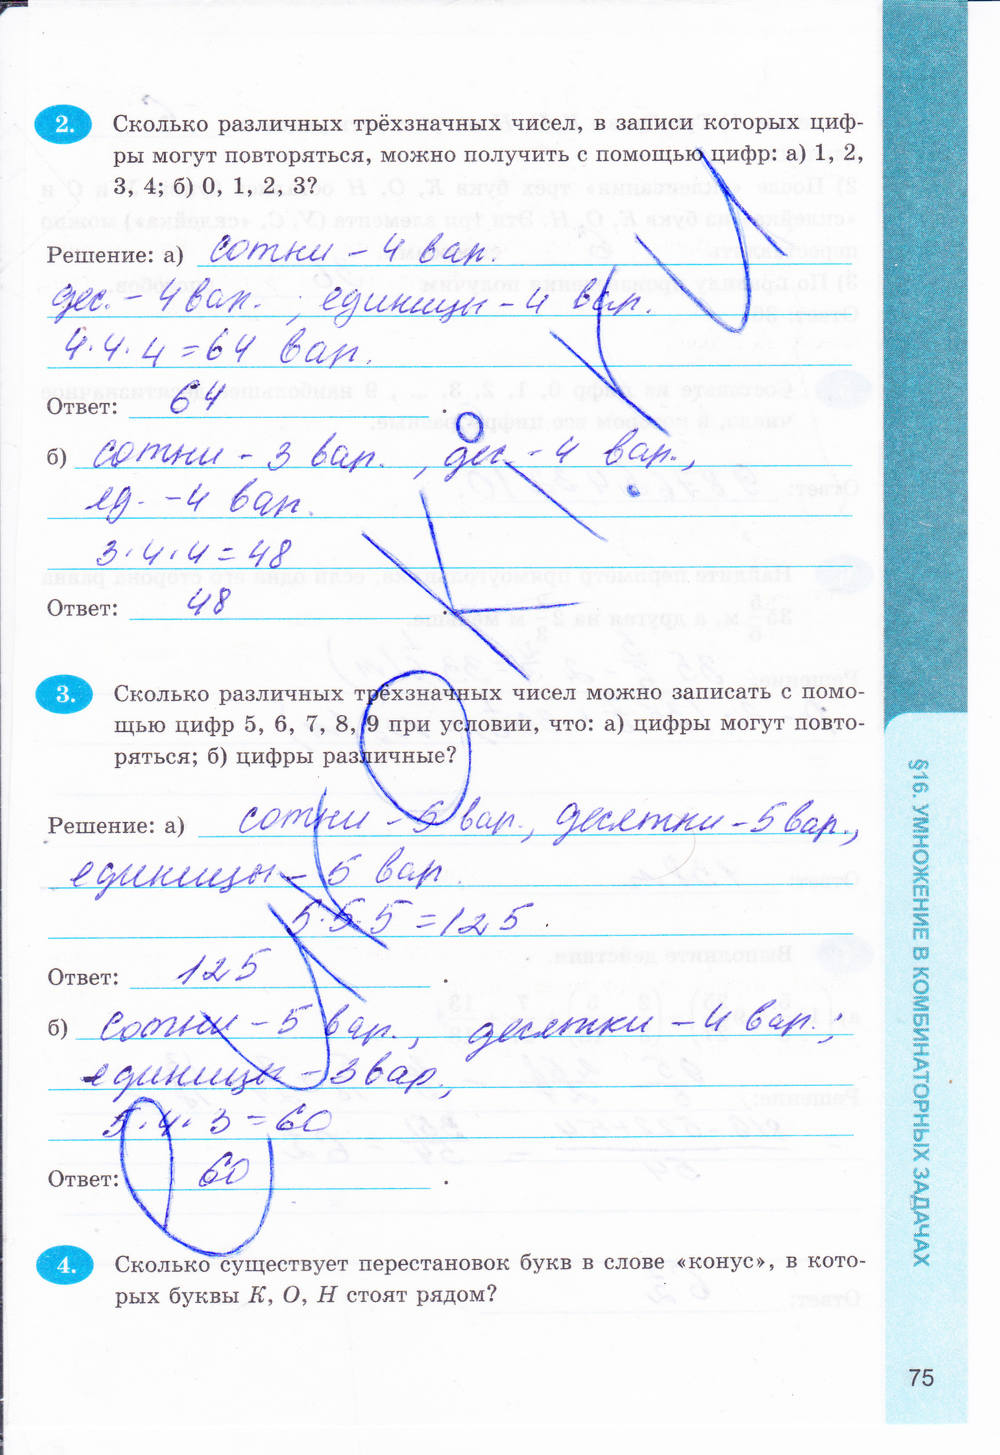 2. Сколько различных трёхзначных чисел, в записи которых циф-
ры могут повторяться, можно получить с помощью цифр: а) 1, 2,
3, 4; б) 0, 1, 2, 3?
Решение: а) сотни - 4 вар.
дес. - 4 вар. ; единицы - 4 вар.
4·4·4 = 64 вар.
Ответ: 64 .
б) сотни - 3 вар. , дес - 4 вар.,
ед. - 4 вар.
3·4·4 = 48
Ответ: 48 .
3. Сколько различных трёхзначных чисел можно записать с помо-
щью цифр 5, 6, 7, 8, 9 при условии, что: а) цифры могут повто-
ряться; б) цифры различные?
Решение: а) сотни - 5 вар., десятки - 5 вар.,
единицы - 5 вар.
5·5·5 = 125 .
Ответ: 125 .
б) сотни - 5 вар., десятки - 4 вар.;
единицы - 3 вар.,
5·4·3 = 60
Ответ: 60 .
4. Сколько существует перестановок букв в слове «конус», в кото-
рых буквы К, О, Н стоят рядом?
§16. УМНОЖЕНИЕ В КОМБИНАТОРНЫХ ЗАДАЧАХ
75